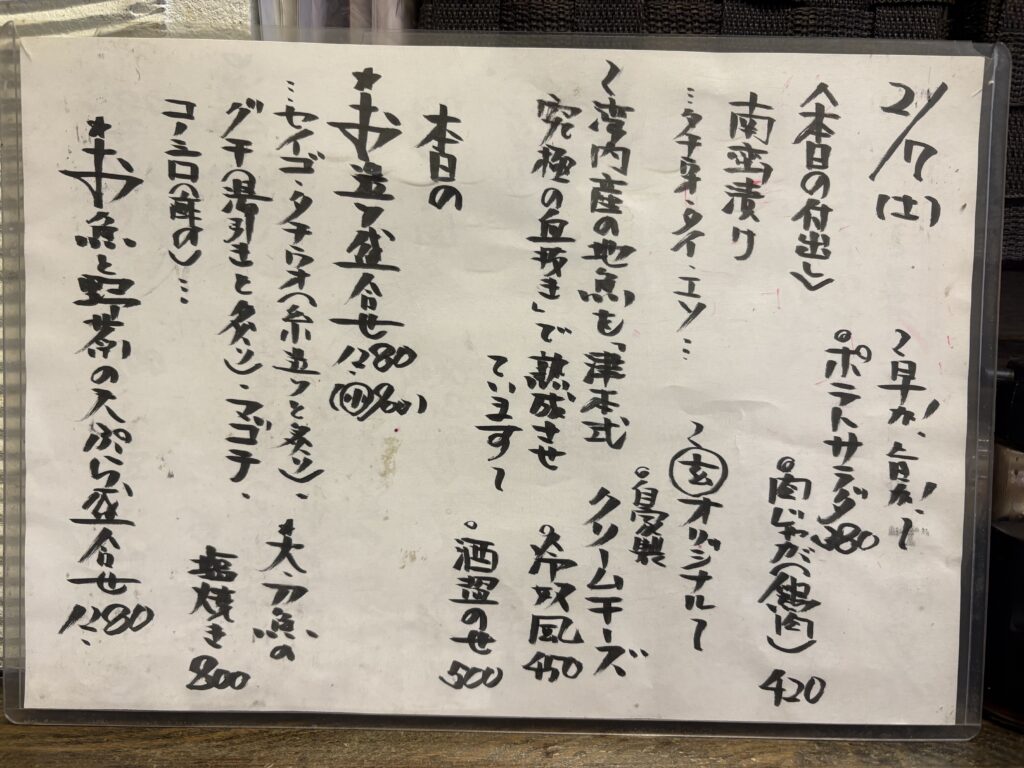 2/7(土)
〜早かもん!旨かもん!〜
〈本日の付出し〉
。ポテトサラダ 380
南蛮漬け
。肉じゃが(鶏肉) 420
…タチウオ・タイ・エソ…
〜玄オリジナル〜
〜湾内産の地魚を「津本式
。自家製
クリームチーズ
究極の血抜き」で熟成させ
ています〜
。冷奴風 450
本日の
。酒盗のせ 500
★お造り盛合せ 1280
(小)800
…セイゴ、タチウオ(糸造りと炙り)、
グチ(湯引きと炙り)、マゴチ、
コノシロ(酢〆)…
★太刀魚の
塩焼き 800
★お魚と野菜の天ぷら盛合せ 1280